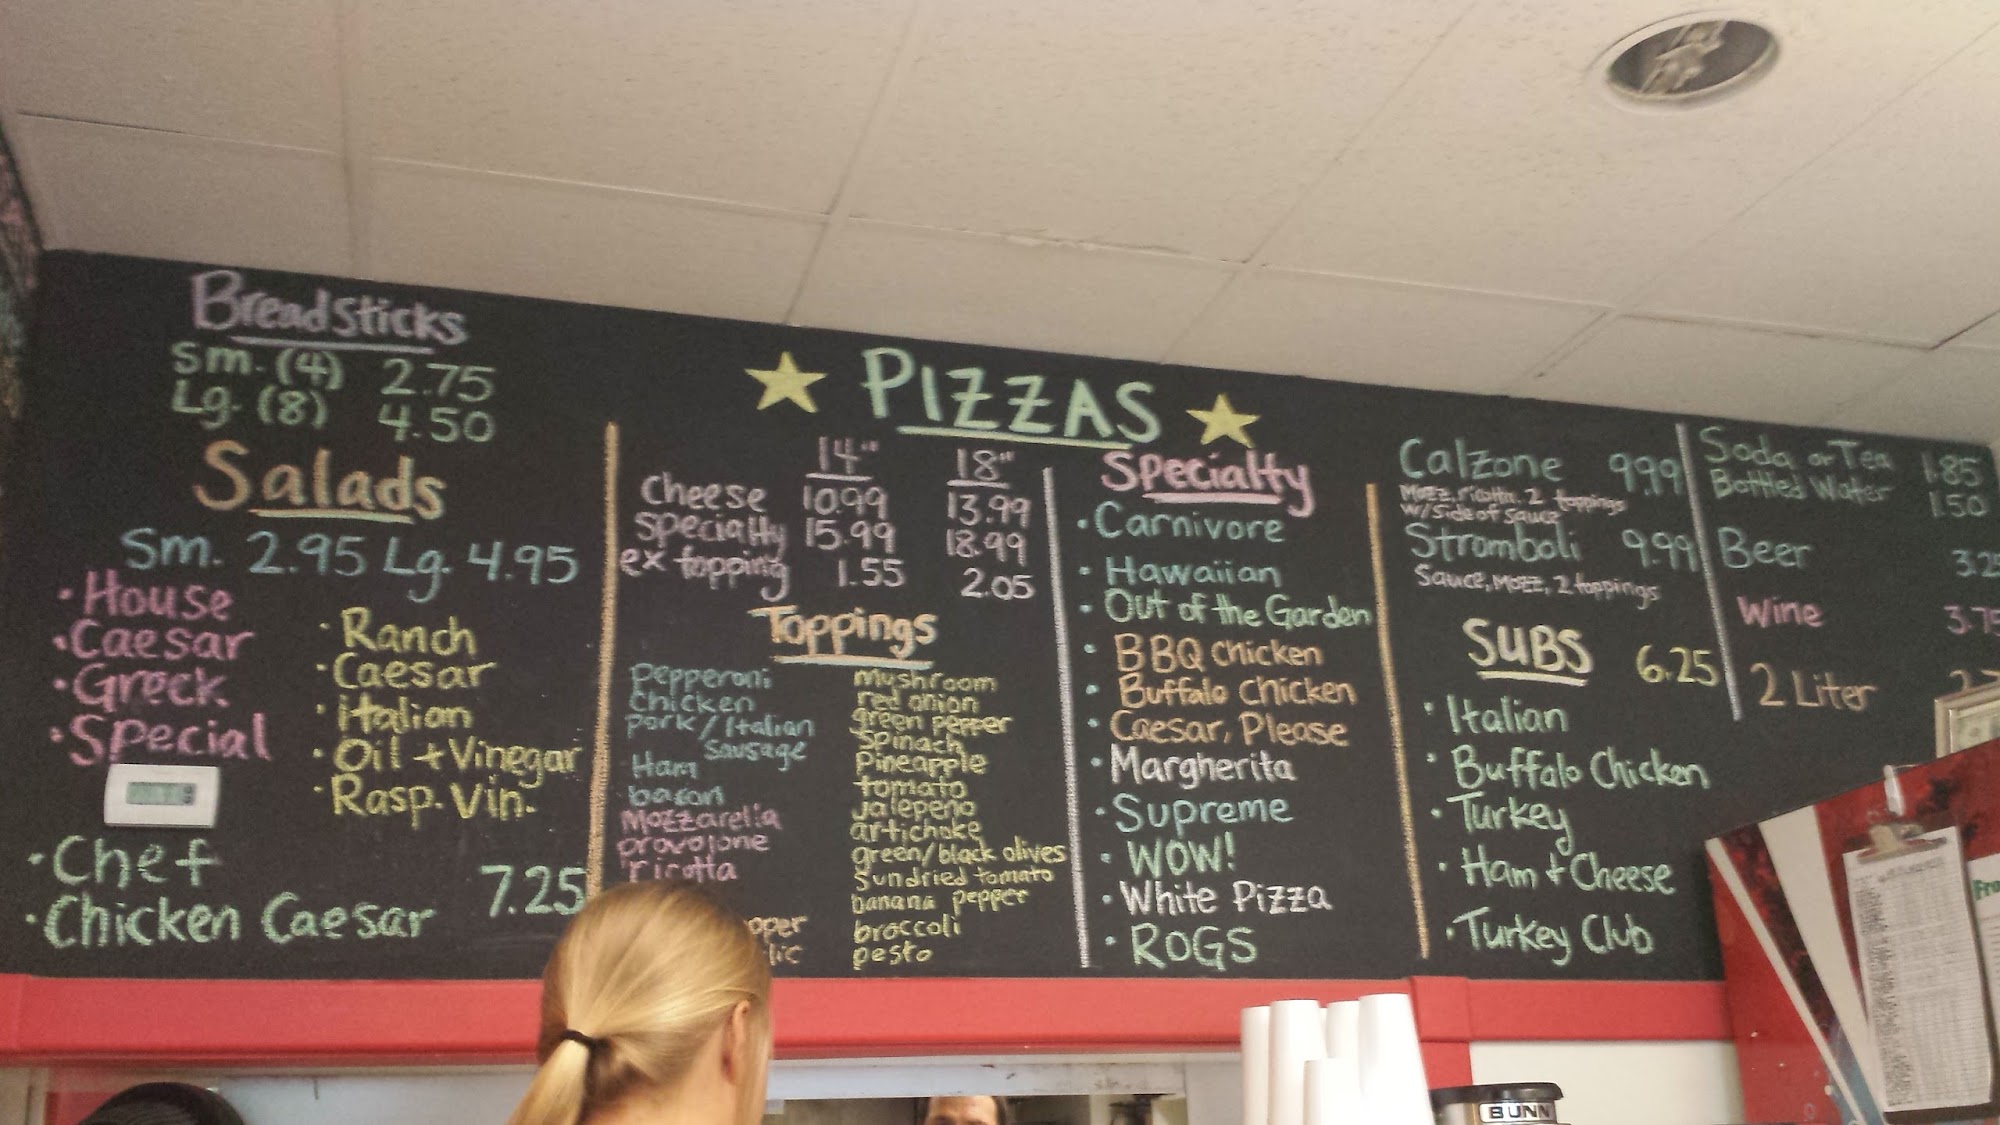 Breadsticks
Sm. (4) 2.75
Lg. (8) 4.50
Salads
Sm. 2.95 Lg. 4.95
• House
• Caesar
• Greek
• Special
• Ranch
• Caesar
• Italian
• Oil + Vinegar
• Rasp. Vin.
• Chef
• Chicken Caesar 7.25
PIZZAS
14" 18"
Cheese 10.99 13.99
Specialty 15.99 18.99
ex topping 1.55 2.05
Toppings
Pepperoni
Chicken
pork/Italian
Sausage
Ham
bacon
Mozzarella
provolone
ricotta
mushroom
red onion
green pepper
Spinach
Pineapple
tomato
Jalepeño
artichoke
green/black olives
Sundried tomato
banana pepper
broccoli
pesto
Specialty
• Carnivore
• Hawaiian
• Out of the Garden
• BBQ Chicken
• Buffalo Chicken
• Caesar, Please
• Margherita
• Supreme
• WOW!
• White Pizza
• ROGS
Calzone 9.99
Mozz, ricotta, 2 toppings
w/Side of Sauce
Stromboli 9.99
Sauce, Mozz, 2 toppings
SUBS 6.25
• Italian
• Buffalo Chicken
• Turkey
• Ham + Cheese
• Turkey Club
Soda or Tea 1.85
Bottled Water 1.50
Beer 3.25
Wine 3.75
2 Liter
BUNN